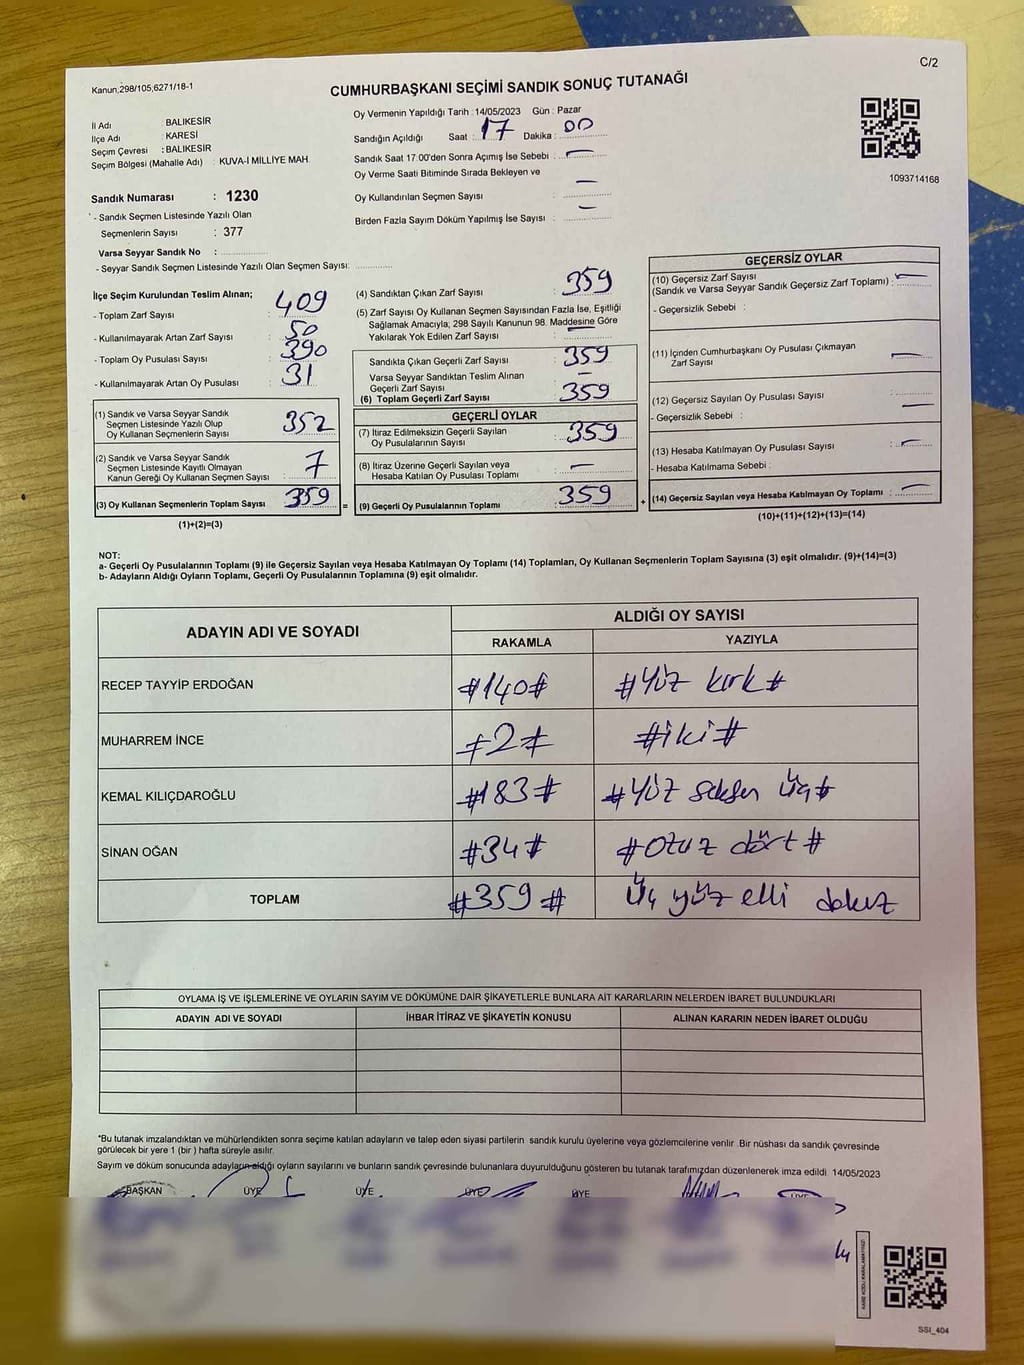 C/2
Kanun;298/105;6271/18-1
CUMHURBAŞKANI SEÇİMİ SANDIK SONUÇ TUTANAĞI
İl Adı : BALIKESİR
İlçe Adı : KARESİ
Seçim Çevresi : BALIKESİR
Seçim Bölgesi (Mahalle Adı) : KUVA-İ MİLLİYE MAH.
Oy Vermenin Yapıldığı Tarih : 14/05/2023 Gün : Pazar
Sandığın Açıldığı Saat : 17 Dakika : 00
Sandık Saat 17:00'den Sonra Açımış İse Sebebi : —
Oy Verme Saati Bitiminde Sırada Bekleyen ve
Oy Kullandırılan Seçmen Sayısı —
Birden Fazla Sayım Döküm Yapılmış İse Sayısı : —
1093714168
Sandık Numarası : 1230
- Sandık Seçmen Listesinde Yazılı Olan
Seçmenlerin Sayısı : 377
Varsa Seyyar Sandık No :
- Seyyar Sandık Seçmen Listesinde Yazılı Olan Seçmen Sayısı:
İlçe Seçim Kurulundan Teslim Alınan;
- Toplam Zarf Sayısı : 409
- Kullanılmayarak Artan Zarf Sayısı : 50
- Toplam Oy Pusulası Sayısı : 390
- Kullanılmayarak Artan Oy Pusulası : 31
(1) Sandık ve Varsa Seyyar Sandık
Seçmen Listesinde Yazılı Olup
Oy Kullanan Seçmenlerin Sayısı : 352
(2) Sandık ve Varsa Seyyar Sandık
Seçmen Listesinde Kayıtlı Olmayan
Kanun Gereği Oy Kullanan Seçmen Sayısı : 7
(3) Oy Kullanan Seçmenlerin Toplam Sayısı : 359
(1)+(2)=(3)
(4) Sandıktan Çıkan Zarf Sayısı : 359
(5) Zarf Sayısı Oy Kullanan Seçmen Sayısından Fazla İse, Eşitliği
Sağlamak Amacıyla; 298 Sayılı Kanunun 98. Maddesine Göre
Yakılarak Yok Edilen Zarf Sayısı : —
Sandıkta Çıkan Geçerli Zarf Sayısı : 359
Varsa Seyyar Sandıktan Teslim Alınan
Geçerli Zarf Sayısı : —
(6) Toplam Geçerli Zarf Sayısı : 359
GEÇERLİ OYLAR
(7) İtiraz Edilmeksizin Geçerli Sayılan
Oy Pusulalarının Sayısı : 359
(8) İtiraz Üzerine Geçerli Sayılan veya
Hesaba Katılan Oy Pusulası Toplamı : —
= (9) Geçerli Oy Pusulalarının Toplamı : 359
GEÇERSİZ OYLAR
(10) Geçersiz Zarf Sayısı
(Sandık ve Varsa Seyyar Sandık Geçersiz Zarf Toplamı) : —
- Geçersizlik Sebebi :
(11) İçinden Cumhurbaşkanı Oy Pusulası Çıkmayan
Zarf Sayısı : —
(12) Geçersiz Sayılan Oy Pusulası Sayısı : —
- Geçersizlik Sebebi :
(13) Hesaba Katılmayan Oy Pusulası Sayısı : —
- Hesaba Katılmama Sebebi :
+ (14) Geçersiz Sayılan veya Hesaba Katılmayan Oy Toplamı : —
(10)+(11)+(12)+(13)=(14)
NOT:
a- Geçerli Oy Pusulalarının Toplamı (9) ile Geçersiz Sayılan veya Hesaba Katılmayan Oy Toplamı (14) Toplamları, Oy Kullanan Seçmenlerin Toplam Sayısına (3) eşit olmalıdır. (9)+(14)=(3)
b- Adayların Aldığı Oyların Toplamı, Geçerli Oy Pusulalarının Toplamına (9) eşit olmalıdır.
ADAYIN ADI VE SOYADI ALDIĞI OY SAYISI
RAKAMLA YAZIYLA
RECEP TAYYİP ERDOĞAN #140# #Yüz kırk#
MUHARREM İNCE #2# #iki#
KEMAL KILIÇDAROĞLU #183# #Yüz seksen üç#
SİNAN OĞAN #34# #Otuz dört#
TOPLAM #359# Üç yüz elli dokuz
OYLAMA İŞ VE İŞLEMLERİNE VE OYLARIN SAYIM VE DÖKÜMÜNE DAİR ŞİKAYETLERLE BUNLARA AİT KARARLARIN NELERDEN İBARET BULUNDUKLARI
ADAYIN ADI VE SOYADI İHBAR İTİRAZ VE ŞİKAYETİN KONUSU ALINAN KARARIN NEDEN İBARET OLDUĞU
*Bu tutanak imzalandıktan ve mühürlendikten sonra seçime katılan adayların ve talep eden siyasi partilerin sandık kurulu üyelerine veya gözlemcilerine verilir. Bir nüshası da sandık çevresinde
görülecek bir yere 1 (bir) hafta süreyle asılır.
Sayım ve döküm sonucunda adayların aldığı oyların sayılarını ve bunların sandık çevresinde bulunanlara duyurulduğunu gösteren bu tutanak tarafımızdan düzenlenerek imza edildi. 14/05/2023
BAŞKAN ÜYE ÜYE ÜYE ÜYE ÜYE
SSI_404